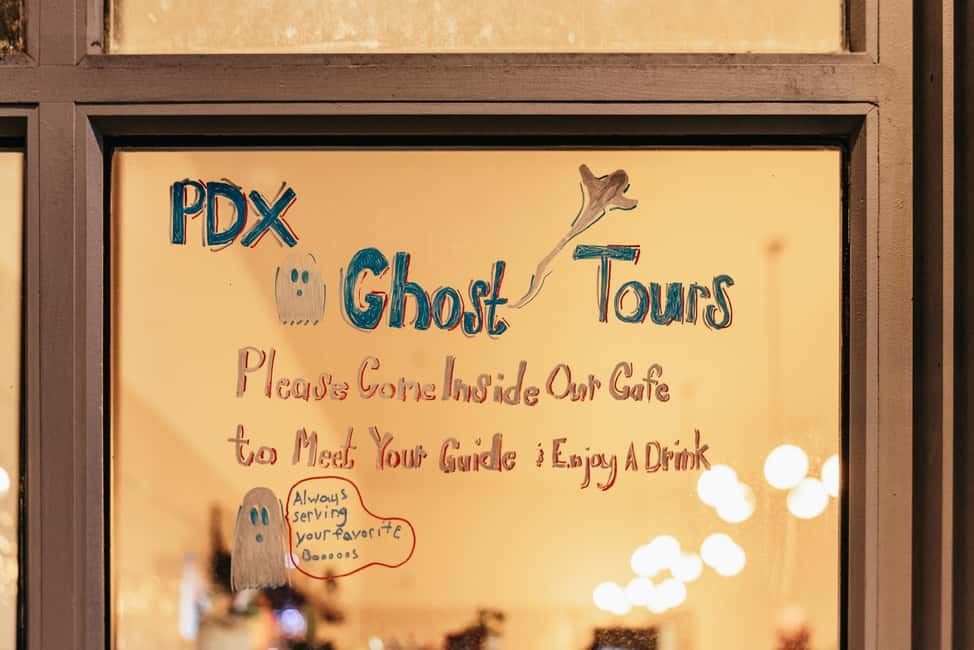 PDX
Ghost Tours
Please Come Inside Our Cafe
to Meet Your Guide & Enjoy A Drink
Always
serving
your favorite
Booooos